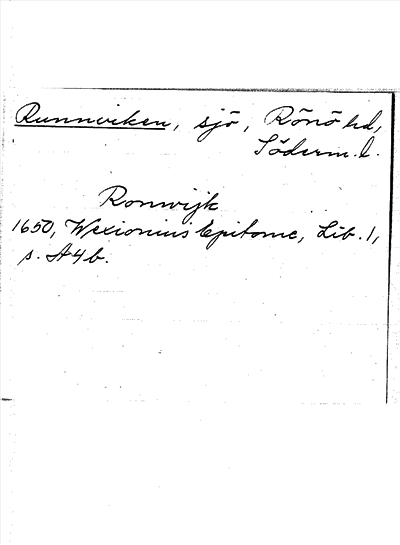 Runnviken, sjö, Rönö hd,
Söderm. l.
Ronwijk
1650, Wexionius Epitome, Lib. 1,
s. A4b.